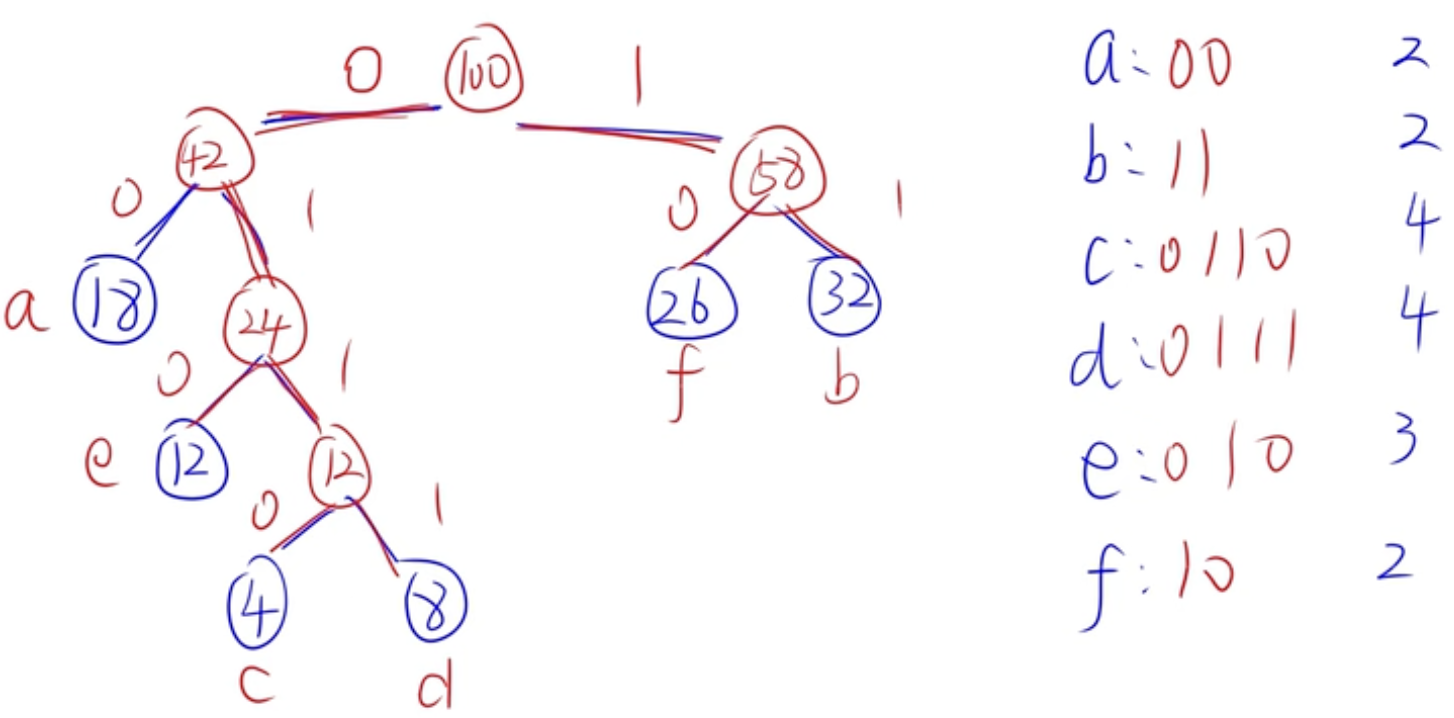 0 100 1
42 58
0 1 0 1
a 18 24 26 32
f b
0 1
e 12 12
0 1
4 8
c d
a: 00 2
b: 11 2
c: 0110 4
d: 0111 4
e: 010 3
f: 10 2